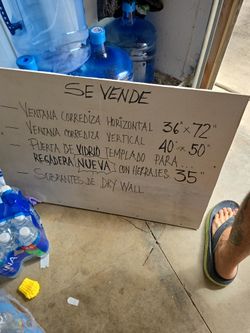 SE VENDE
- VENTANA CORREDIZA HORIZONTAL 36"x72"
- VENTANA CORREDIZA VERTICAL 40"x50"
- PUERTA DE VIDRIO TEMPLADO PARA...
REGADERA NUEVA CON HERRAJES 35"
- SOBRANTES DE DRY WALL